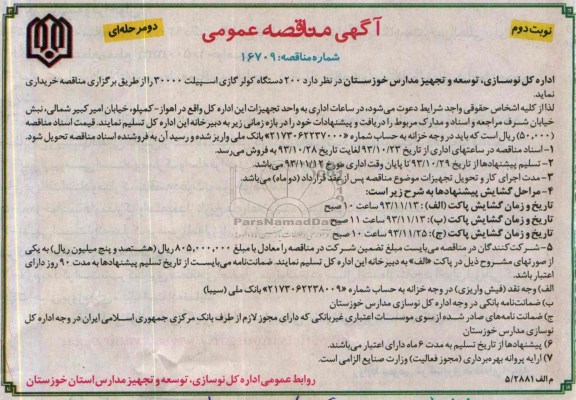 نوبت دوم
آگهی مناقصه عمومی
دو مرحله‌ای
شماره مناقصه: ۱۶۷۰۹
اداره کل نوسازی، توسعه و تجهیز مدارس خوزستان در نظر دارد ۲۰۰ دستگاه کولر گازی اسپیلت ۳۰۰۰۰ را از طریق برگزاری مناقصه خریداری
نماید.
لذا از کلیه اشخاص حقوقی واجد شرایط دعوت می‌شود، در ساعات اداری به واحد تجهیزات این اداره کل واقع در اهواز- کمپلو، خیابان امیر کبیر شمالی، نبش
خیابان شرف مراجعه و اسناد و مدارک مربوط را دریافت و پیشنهادات خود را در بازه زمانی زیر به دبیرخانه این اداره کل تسلیم نمایند. قیمت اسناد مناقصه
(۵۰,۰۰۰) ریال است که باید در وجه خزانه به حساب شماره «۲۱۷۳۰۶۲۲۳۷۰۰۰» بانک ملی واریز شده و رسید آن به فروشنده اسناد مناقصه تحویل شود.
۱-اسناد مناقصه در ساعتهای اداری از تاریخ ۹۳/۱۰/۲۳ لغایت تاریخ ۹۳/۱۰/۲۸ به فروش می‌رسد.
۲- تسلیم پیشنهادها از تاریخ ۹۳/۱۰/۲۹ تا پایان وقت اداری مورخ ۹۳/۱۱/۱۲ می‌باشد.
۳-مدت اجرای کار و تحویل تجهیزات موضوع مناقصه پس از عقد قرارداد (دو ماه) می‌باشد.
۴- مراحل گشایش پیشنهادها به شرح زیر است:
تاریخ و زمان گشایش پاکت (الف): ۹۳/۱۱/۱۳ ساعت ۱۰ صبح
تاریخ و زمان گشایش پاکت (ب): ۹۳/۱۱/۱۳ ساعت ۱۱ صبح
تاریخ و زمان گشایش پاکت (ج): ۹۳/۱۱/۲۵ ساعت ۱۰ صبح
ParsNamadData
۵- شرکت کنندگان در مناقصه می‌بایست مبلغ تضمین شرکت در مناقصه را معادل با مبلغ ۸۰۵,۰۰۰,۰۰۰ ریال (هشتصد و پنج میلیون ریال) به یکی
از صورتهای مشروح ذیل در پاکت «الف» به دبیرخانه این اداره کل تسلیم نمایند. ضمانت‌نامه می‌بایست از تاریخ تسلیم پیشنهادها به مدت ۹۰ روز دارای
اعتبار باشد.
الف) وجه نقد (فیش واریزی) در وجه خزانه به حساب شماره «۲۱۷۳۰۶۲۲۳۸۰۰۹» بانک ملی (سیبا)
ب) ضمانت‌نامه بانکی در وجه اداره کل نوسازی مدارس خوزستان
ج) ضمانت نامه‌های صادر شده از سوی موسسات اعتباری غیربانکی که دارای مجوز لازم از طرف بانک مرکزی جمهوری اسلامی ایران در وجه اداره کل
نوسازی مدارس خوزستان
۶) پیشنهادها از تاریخ تسلیم به مدت ۶ ماه دارای اعتبار می‌باشند.
۷) ارایه پروانه بهره‌برداری (مجوز فعالیت) وزارت صنایع الزامی است.
م الف ۵/۲۸۸۱
روابط عمومی اداره کل نوسازی، توسعه و تجهیز مدارس استان خوزستان